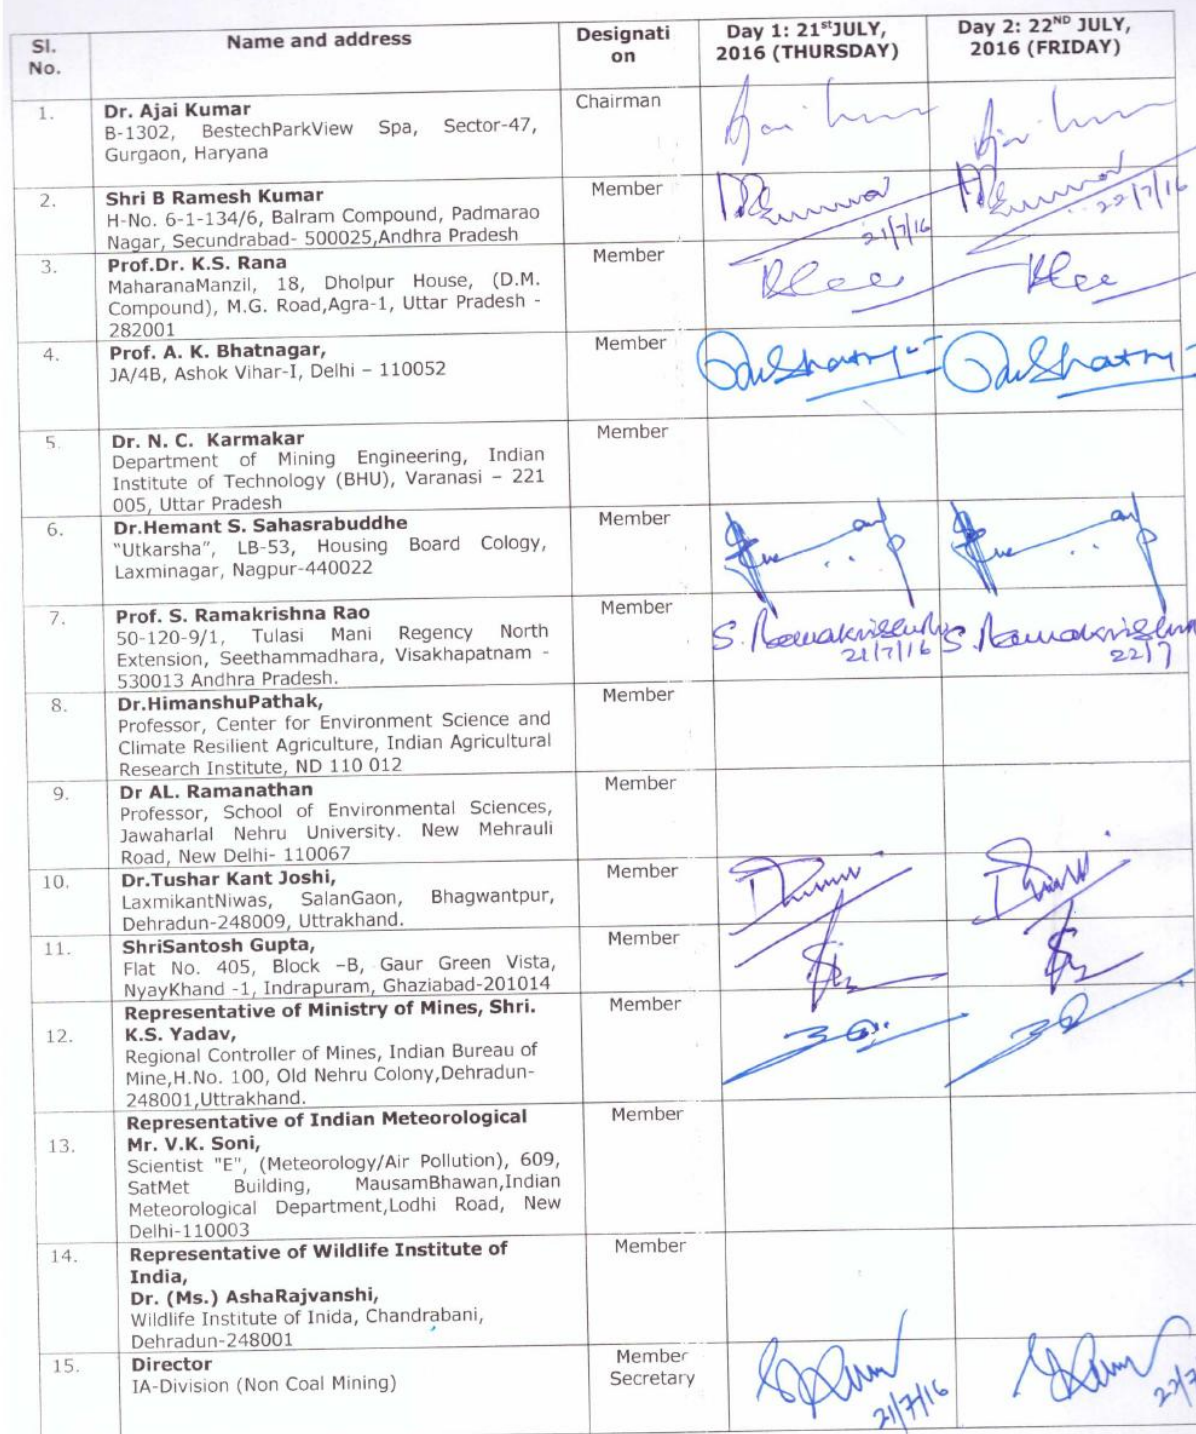 Sl. No.
Name and address
Designati on
Day 1: 21stJULY, 2016 (THURSDAY)
Day 2: 22ND JULY, 2016 (FRIDAY)
1.
Dr. Ajai Kumar
B-1302, BestechParkView Spa, Sector-47,
Gurgaon, Haryana
Chairman
2.
Shri B Ramesh Kumar
H-No. 6-1-134/6, Balram Compound, Padmarao
Nagar, Secundrabad- 500025,Andhra Pradesh
Member
21/7/16
22/7/16
3.
Prof.Dr. K.S. Rana
MaharanaManzil, 18, Dholpur House, (D.M.
Compound), M.G. Road,Agra-1, Uttar Pradesh -
282001
Member
4.
Prof. A. K. Bhatnagar,
JA/4B, Ashok Vihar-I, Delhi – 110052
Member
5.
Dr. N. C. Karmakar
Department of Mining Engineering, Indian
Institute of Technology (BHU), Varanasi – 221
005, Uttar Pradesh
Member
6.
Dr.Hemant S. Sahasrabuddhe
"Utkarsha", LB-53, Housing Board Cology,
Laxminagar, Nagpur-440022
Member
7.
Prof. S. Ramakrishna Rao
50-120-9/1, Tulasi Mani Regency North
Extension, Seethammadhara, Visakhapatnam -
530013 Andhra Pradesh.
Member
21/7/16
22/7
8.
Dr.HimanshuPathak,
Professor, Center for Environment Science and
Climate Resilient Agriculture, Indian Agricultural
Research Institute, ND 110 012
Member
9.
Dr AL. Ramanathan
Professor, School of Environmental Sciences,
Jawaharlal Nehru University. New Mehrauli
Road, New Delhi- 110067
Member
10.
Dr.Tushar Kant Joshi,
LaxmikantNiwas, SalanGaon, Bhagwantpur,
Dehradun-248009, Uttrakhand.
Member
11.
ShriSantosh Gupta,
Flat No. 405, Block –B, Gaur Green Vista,
NyayKhand -1, Indrapuram, Ghaziabad-201014
Member
12.
Representative of Ministry of Mines, Shri.
K.S. Yadav,
Regional Controller of Mines, Indian Bureau of
Mine,H.No. 100, Old Nehru Colony,Dehradun-
248001,Uttrakhand.
Member
13.
Representative of Indian Meteorological
Mr. V.K. Soni,
Scientist "E", (Meteorology/Air Pollution), 609,
SatMet Building, MausamBhawan,Indian
Meteorological Department,Lodhi Road, New
Delhi-110003
Member
14.
Representative of Wildlife Institute of
India,
Dr. (Ms.) AshaRajvanshi,
Wildlife Institute of Inida, Chandrabani,
Dehradun-248001
Member
15.
Director
IA-Division (Non Coal Mining)
Member
Secretary
21/7/16